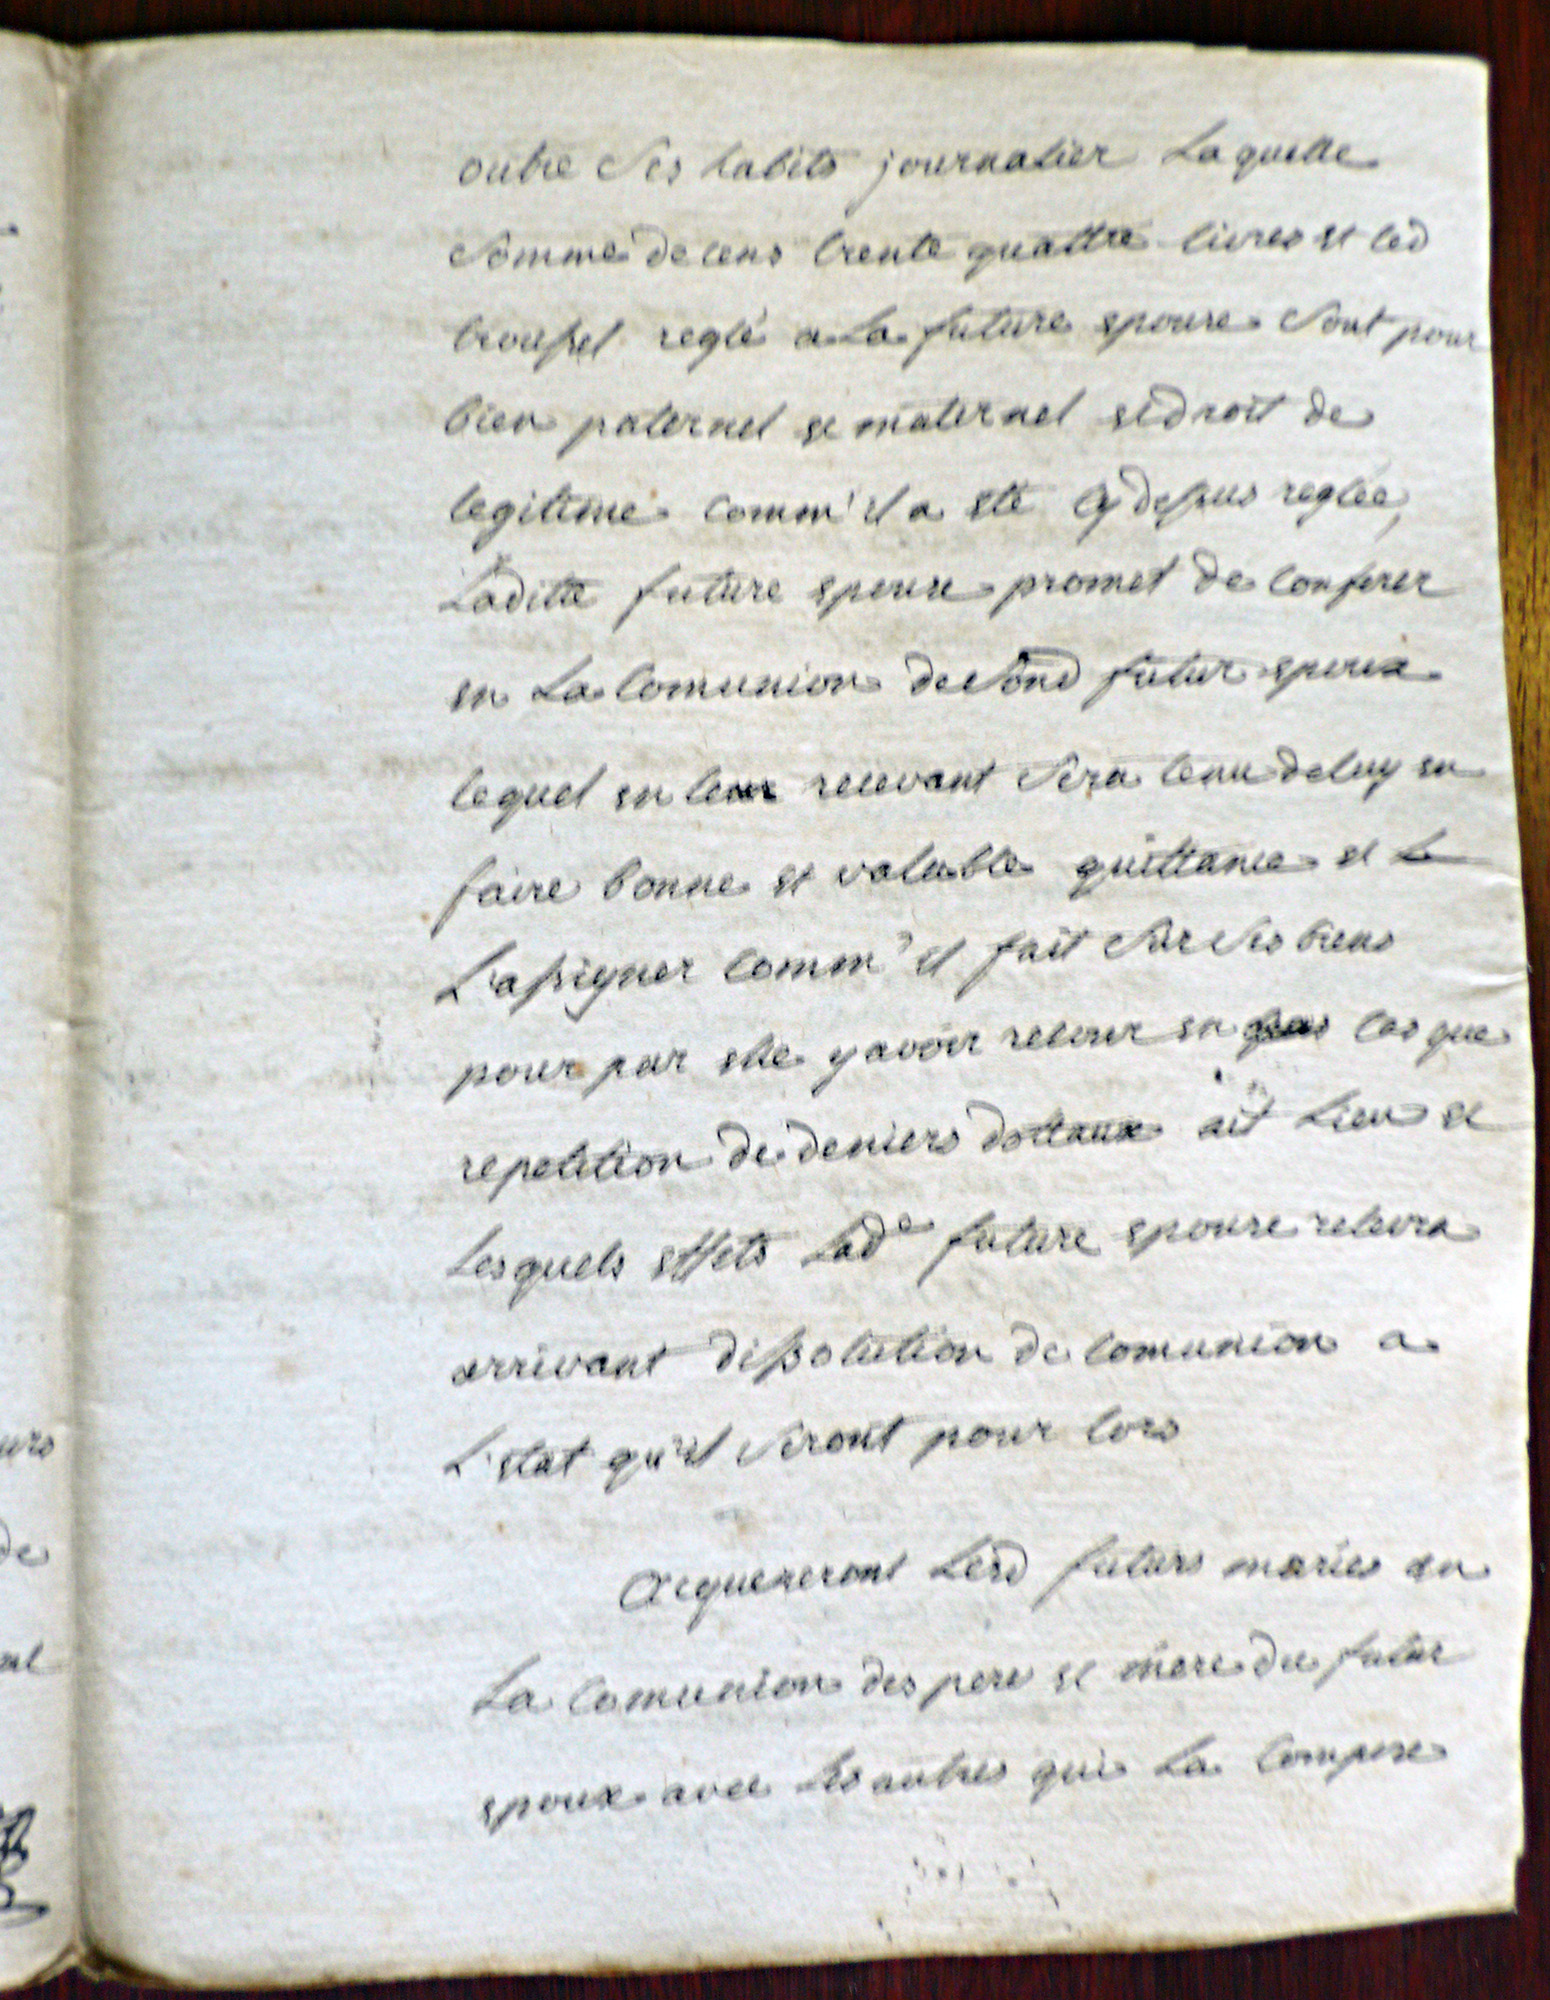 outre Ses habits journalier Laquelle
Somme de cens trente quattre livres et led
troussel reglé a La future epouse Sont pour
bien paternel et maternel et droit de
legitime comm'il a eté cy dessus reglée,
Laditte future epouse promet de conferer
en La Comunion de Sond futur epoux
lequel en les recevant Sera tenu de luy en
faire bonne et valable quittance et
L'assigner comm'il fait Sur Ses biens
pour par elle y avoir retour en cas que
repetition de deniers dottaux ait Lieu et
Lesquels effets Lade future epouse retevra
arrivant dissolution de comunion a
L'etat qu'il Seront pour lors
Acquereront Lesd futurs mariés en
La comunion des pere et mere du futur
epoux avec Les autres qui La Compose
uro
de